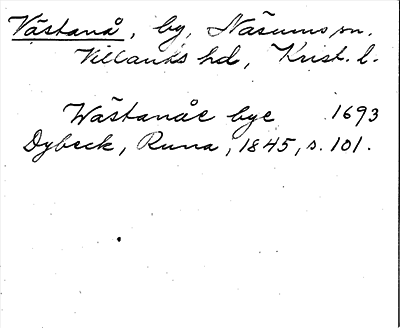 Västanå, by, Näsums sn.
Villands hd, Krist. l.
Wästanåe bye 1693
Dybeck, Runa, 1845, s. 101.